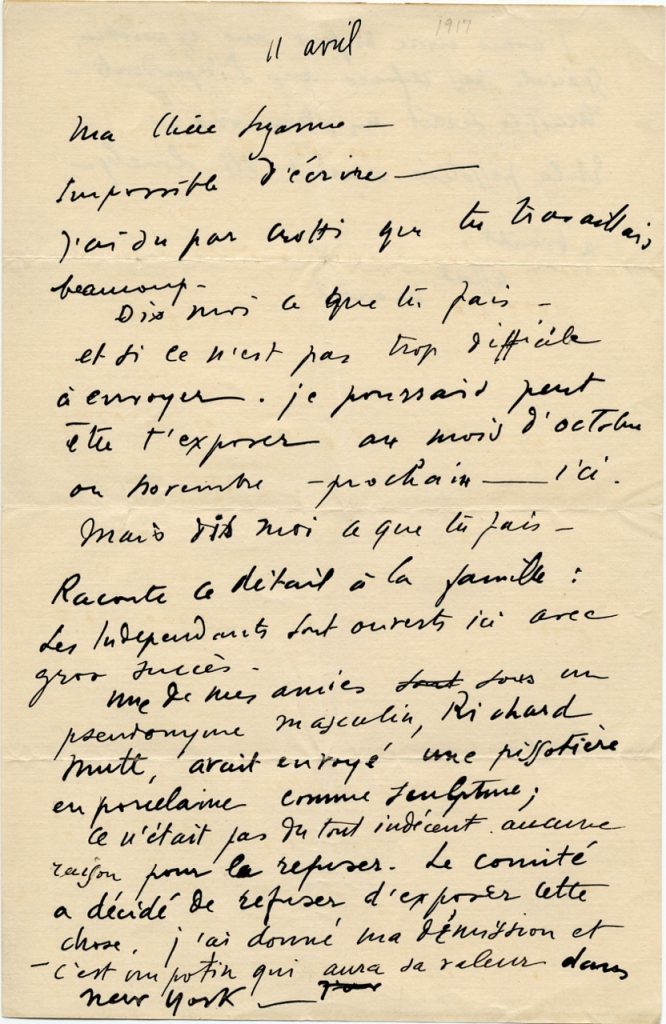 1917
11 avril
Ma chère Suzanne —
Impossible d'écrire —
J'ai su par Crotti que tu travaillais
beaucoup.
Dis moi ce que tu fais —
et si ce n'est pas trop difficile
à envoyer. je pourrais peut
être t'exposer au mois d'octobre
ou novembre — prochain — ici.
Mais dis moi ce que tu fais —
Raconte ce détail à la famille :
Les Indépendants sont ouverts ici avec
gros succès.
Une de mes amies sous un
pseudonyme masculin, Richard
Mutt, avait envoyé une pissotière
en porcelaine comme sculpture;
ce n'était pas du tout indécent aucune
raison pour la refuser. Le comité
a décidé de refuser d'exposer cette
chose. j'ai donné ma démission et
— c'est un potin qui aura sa valeur dans
New York —